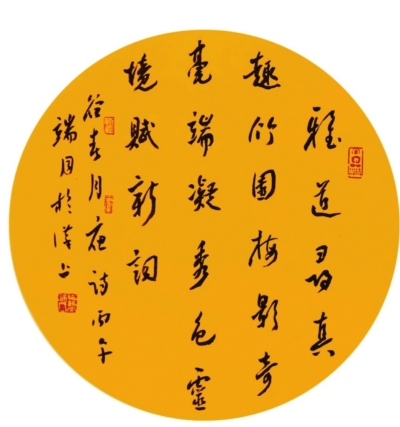 雅道尋真
趣竹園梅影奇
毫端凝秀色靈
境賦新詞
谷春月詩丙午
端月於漢上